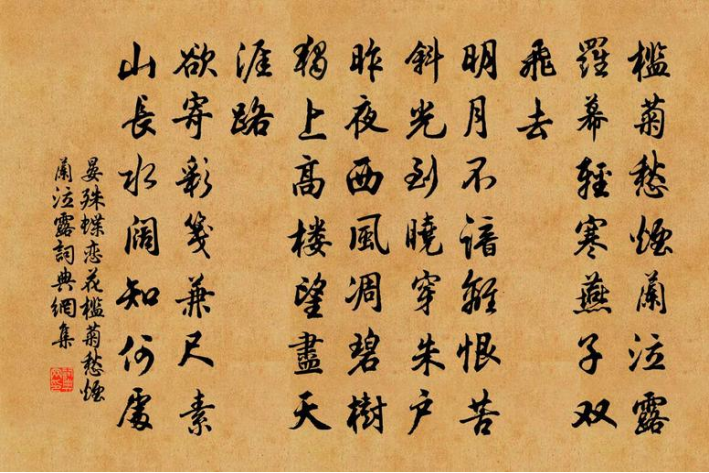 槛菊愁烟蘭泣露
羅幕輕寒燕子双
飛去
明月不諳離恨苦
斜光到曉穿朱户
昨夜西風凋碧樹
獨上高楼望盡天
涯路
欲寄彩箋兼尺素
山長水闊知何處
晏殊蝶恋花槛菊愁烟
蘭泣露詞典網集